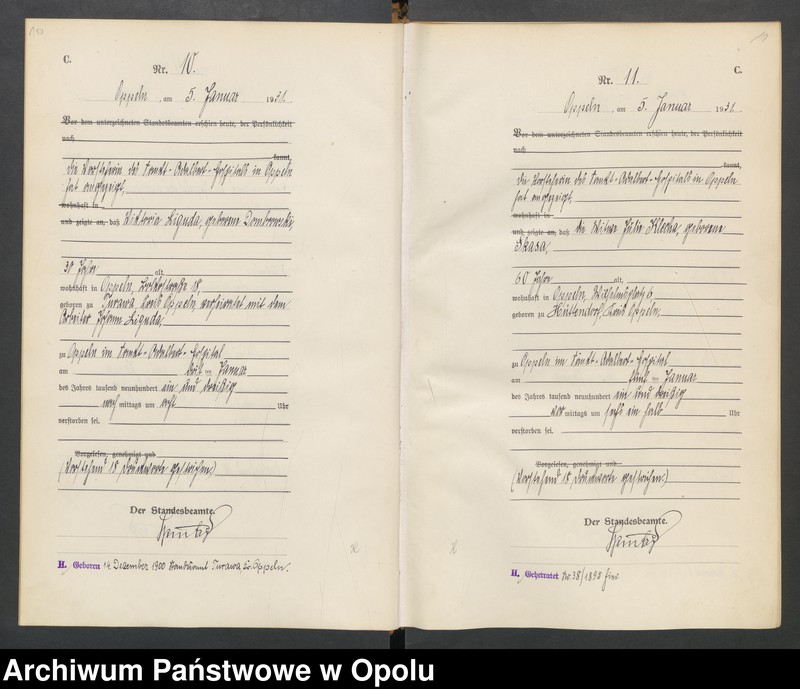 C.
Nr. 10.
Oppeln, am 5. Januar 1931.
Vor dem unterzeichneten Standesbeamten erschien heute, der Persönlichkeit
nach
kannt,
die Vorsteherin des Sankt-Adalbert-Hospitals in Oppeln
hat angezeigt,
wohnhaft in
und zeigte an, daß Viktoria Liguda, geborene Dombrowski,
30 Jahre alt,
wohnhaft in Oppeln, 18,
geboren zu Turawa, Kreis Oppeln, verheiratet mit dem
Arbeiter Johann Liguda,
zu Oppeln im Sankt-Adalbert-Hospital
am drei ten Januar
des Jahres tausend neunhundert ein und dreißig
nach mittags um acht Uhr
verstorben sei.
Vorgelesen, genehmigt und
(Vorstehend 18 Druckworte gestrichen.)
Der Standesbeamte.
H. Geboren 14 Dezember 1900 Standesamt Turawa Kr. Oppeln.
C.
Nr. 11.
Oppeln, am 5. Januar 1931.
Vor dem unterzeichneten Standesbeamten erschien heute, der Persönlichkeit
nach
kannt,
die Vorsteherin des Sankt-Adalbert-Hospitals in Oppeln
hat angezeigt,
wohnhaft in
und zeigte an, daß die Witwe Julie Klecha, geborene
Skasa,
60 Jahre alt,
wohnhaft in Oppeln, Wilhelmsplatz 6,
geboren zu Hüttendorf, Kreis Oppeln,
zu Oppeln im Sankt-Adalbert-Hospital
am fünf ten Januar
des Jahres tausend neunhundert ein und dreißig
vor mittags um sechs ein halb Uhr
verstorben sei.
Vorgelesen, genehmigt und
(Vorstehend 18 Druckworte gestrichen.)
Der Standesbeamte.
H. Geheiratet Nr. 38/1898
Archiwum Państwowe w Opolu